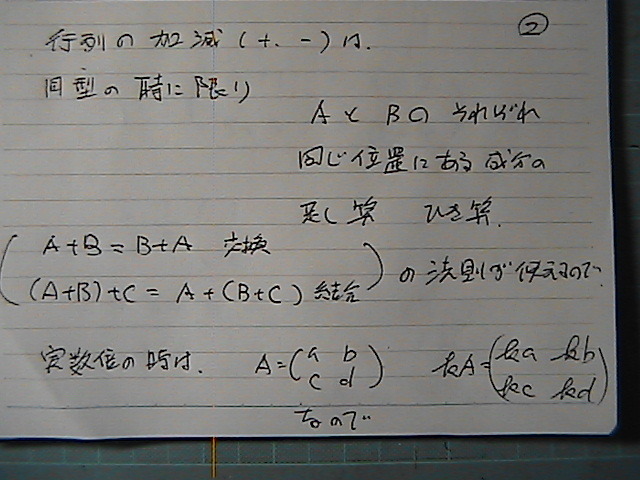 ②
行列の加減(+. -)は.
同型の時に限り
AとBのそれぞれ
同じ位置にある成分の
足し算 ひき算.
A+B=B+A 交換
(A+B)+C = A+(B+C) 結合
の法則が使えるので.
実数倍の時は. A=(a b
c d) kA=(ka kb
kc kd)
なので